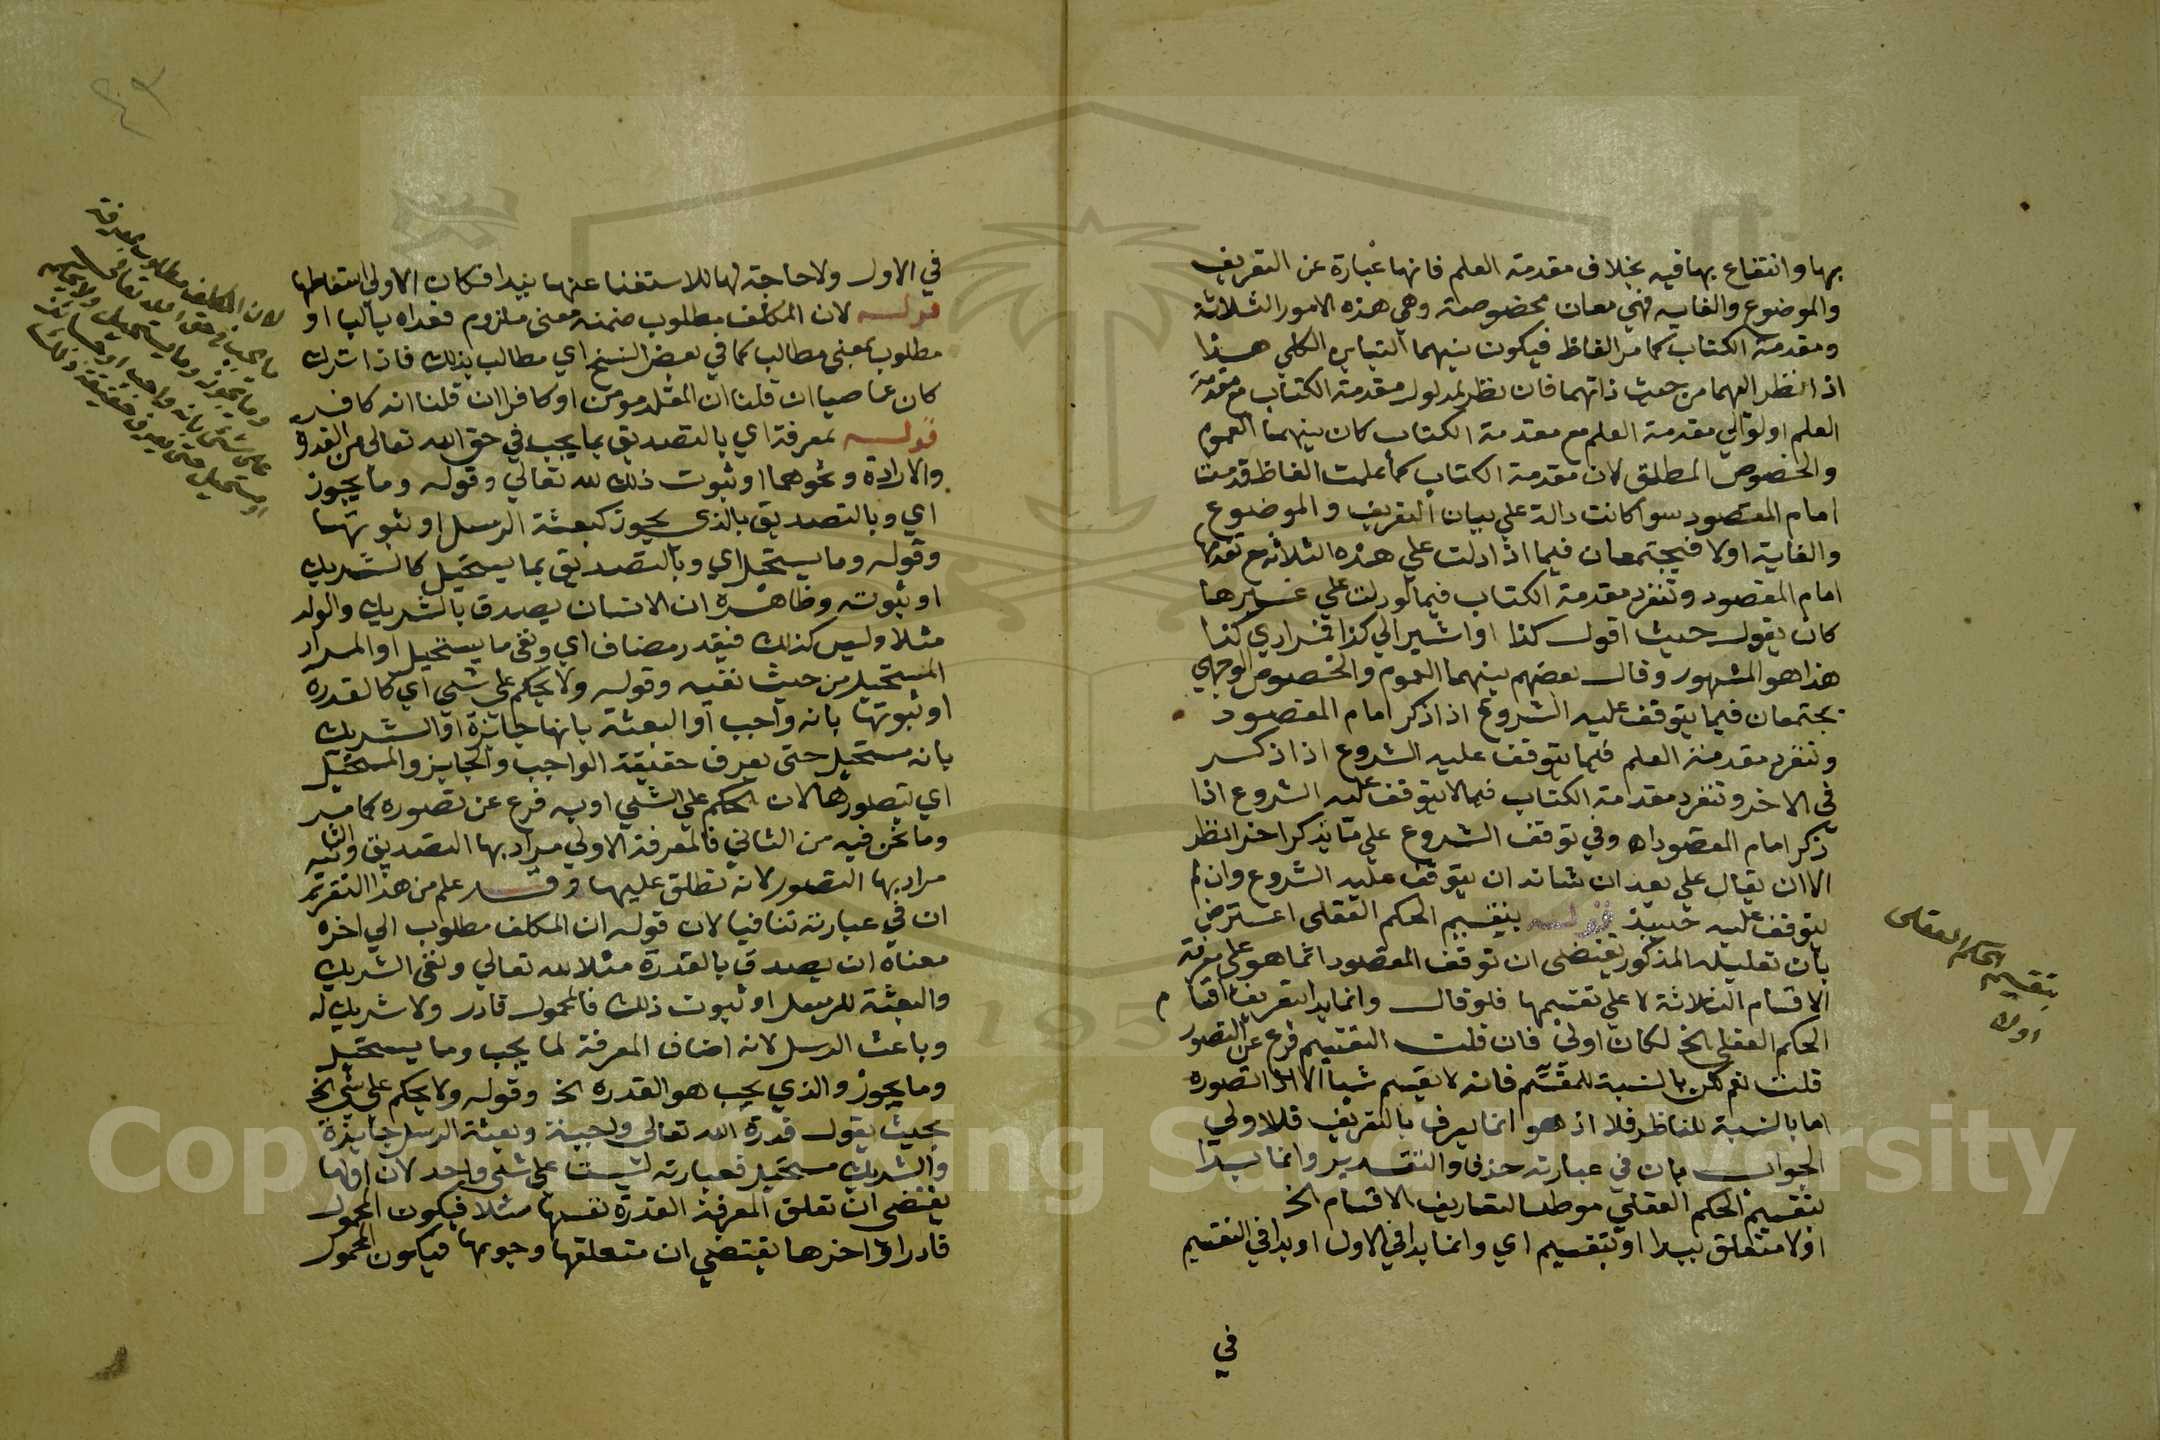 بها وانتفاع بها فيه بخلاف مقدمة العلم فانها عبارة عن التعريف
والموضوع والغايه فهي معان مخصوصة وهي هذه الامور الثلاثة
ومقدمة الكتاب كما مر الفاظ فيكون بينهما التباين الكلي هذا
اذا نظر اليهما من حيث ذاتهما فان نظر لمدلول مقدمة الكتاب مع مقدمة
العلم او لدوالي مقدمة العلم مع مقدمة الكتاب كان بينهما العموم
والخصوص المطلق لان مقدمة الكتاب كما علمت الفاظ قدمت
امام المقصود سوا كانت دالة علي بيان التعريف والموضوع
والغاية اولا فيجتمعان فيما اذا دلت علي هذه الثلاثه مع تقدمها
امام المقصود وتنفرد مقدمة الكتاب فيما لو دلت علي غيرها
كان يقول حيث اقول كذا او اشير الي كذا فمرادي كذا
هذا هو المشهور وقال بعضهم بينهما العموم والخصوص الوجهي
يجتمعان فيما يتوقف عليه الشروع اذا ذكر امام المقصود
وتنفرد مقدمة العلم فيما يتوقف عليه الشروع اذا ذكر
في الاخر وتنفرد مقدمة الكتاب فيما لا يتوقف عليه الشروع اذا
ذكر امام المقصود اه وفي توقف الشروع علي ما يذكر اخرا نظر
الا ان يقال علي بعد ان شانه ان يتوقف عليه الشروع وان لم
يتوقف عليه حينيذ قوله بتقسيم الحكم العقلي اعترض
بان تعليله المذكور يقتضي ان توقف المقصود انما هو على معرفة
الاقسام الثلاثة لا علي تقسيمها فلو قال وانما بدا بتعريف اقسام
الحكم العقلي الخ لكان اولي فان قلت التقسيم فرع عن التصور
قلت نعم لكن بالنسبة للمقسم فانه لا يقسم شيا الا اذا تصوره
اما بالنسبة للناظر فلا اذ هو انما يعرف بالتعريف فلا اولي
الجواب بان في عبارته حذف والتقدير وانما بدا
بتقسيم الحكم العقلي موطيا لتعاريف الاقسام الخ
اولا متعلق ببدا او بتقسيم اي وانما بدا في الاول او بدا في التقسيم
في
بتقسيم الحكم العقلى
اولا
في الاول ولا حاجة لها للاستغنا عنها ببدا فكان الاولي اسقاطها
قوله لان المكلف مطلوب ضمنه معنى ملزوم فعداه بالبا او
مطلوب بمعنى مطالب كما في بعض النسخ اي مطالب بذلك فاذا ترك
كان عاصيا ان قلنا ان المقلد مومن او كافرا ان قلنا انه كافر
قوله بمعرفة اي بالتصديق بما يجب في حق الله تعالى من القدرة
والارادة ونحوهما او ثبوت ذلك لله تعالي وقوله وما يجوز
اي وبالتصديق بالذى يجوز كبعثة الرسل او ثبوتها
وقوله وما يستحيل اي وبالتصديق بما يستحيل كالشريك
او ثبوته وظاهره ان الانسان يصدق بالشريك والولد
مثلا وليس كذلك فيقدر مضاف اي ونفى ما يستحيل او المراد
المستحيل من حيث نفيه وقوله ولا يحكم على شي اي كالقدرة
او ثبوتها بانه واجب او البعثة بانها جائزة او الشريك
بانه مستحيل حتى يعرف حقيقة الواجب والجايز والمستحيل
اي يتصورها لان الحكم علي الشي او به فرع عن تصوره كما مر
وما نحن فيه من الثاني فالمعرفة الاولي مراد بها التصديق والثانيه
مراد بها التصور لانه تطلق عليها وقد علم من هذا التقرير
ان في عبارته تنافيا لان قوله ان المكلف مطلوب الي اخره
معناه ان يصدق بالقدرة مثلا لله تعالي ونفى الشريك
والبعثة للرسل او ثبوت ذلك فالمحمول قادر ولا شريك له
وباعث الرسل لانه اضاف المعرفة لما يجب وما يستحيل
وما يجوز والذي يجب هو القدره الخ وقوله ولا يحكم على شي الخ
بحيث يقول قدرة الله تعالى واجبة وبعثة الرسل جايزة
والشريك مستحيل فعبارته ليست على شي واحد لان اولها
يقتضي ان تعلق المعرفة القدرة نفسها مثلا فيكون المحمول
قادرا واخرها يقتضي ان متعلقها وجوبها فيكون المحمول
لان المكلف مطلوب بمعرفة
ما يجب في حق الله تعالى
وما يجوز وما يستحيل ولا يحكم
على شي بانه واجب او جايز
او مستحيل حتى يعرف حقيقة ذلك
Copyright © King Saud University
195